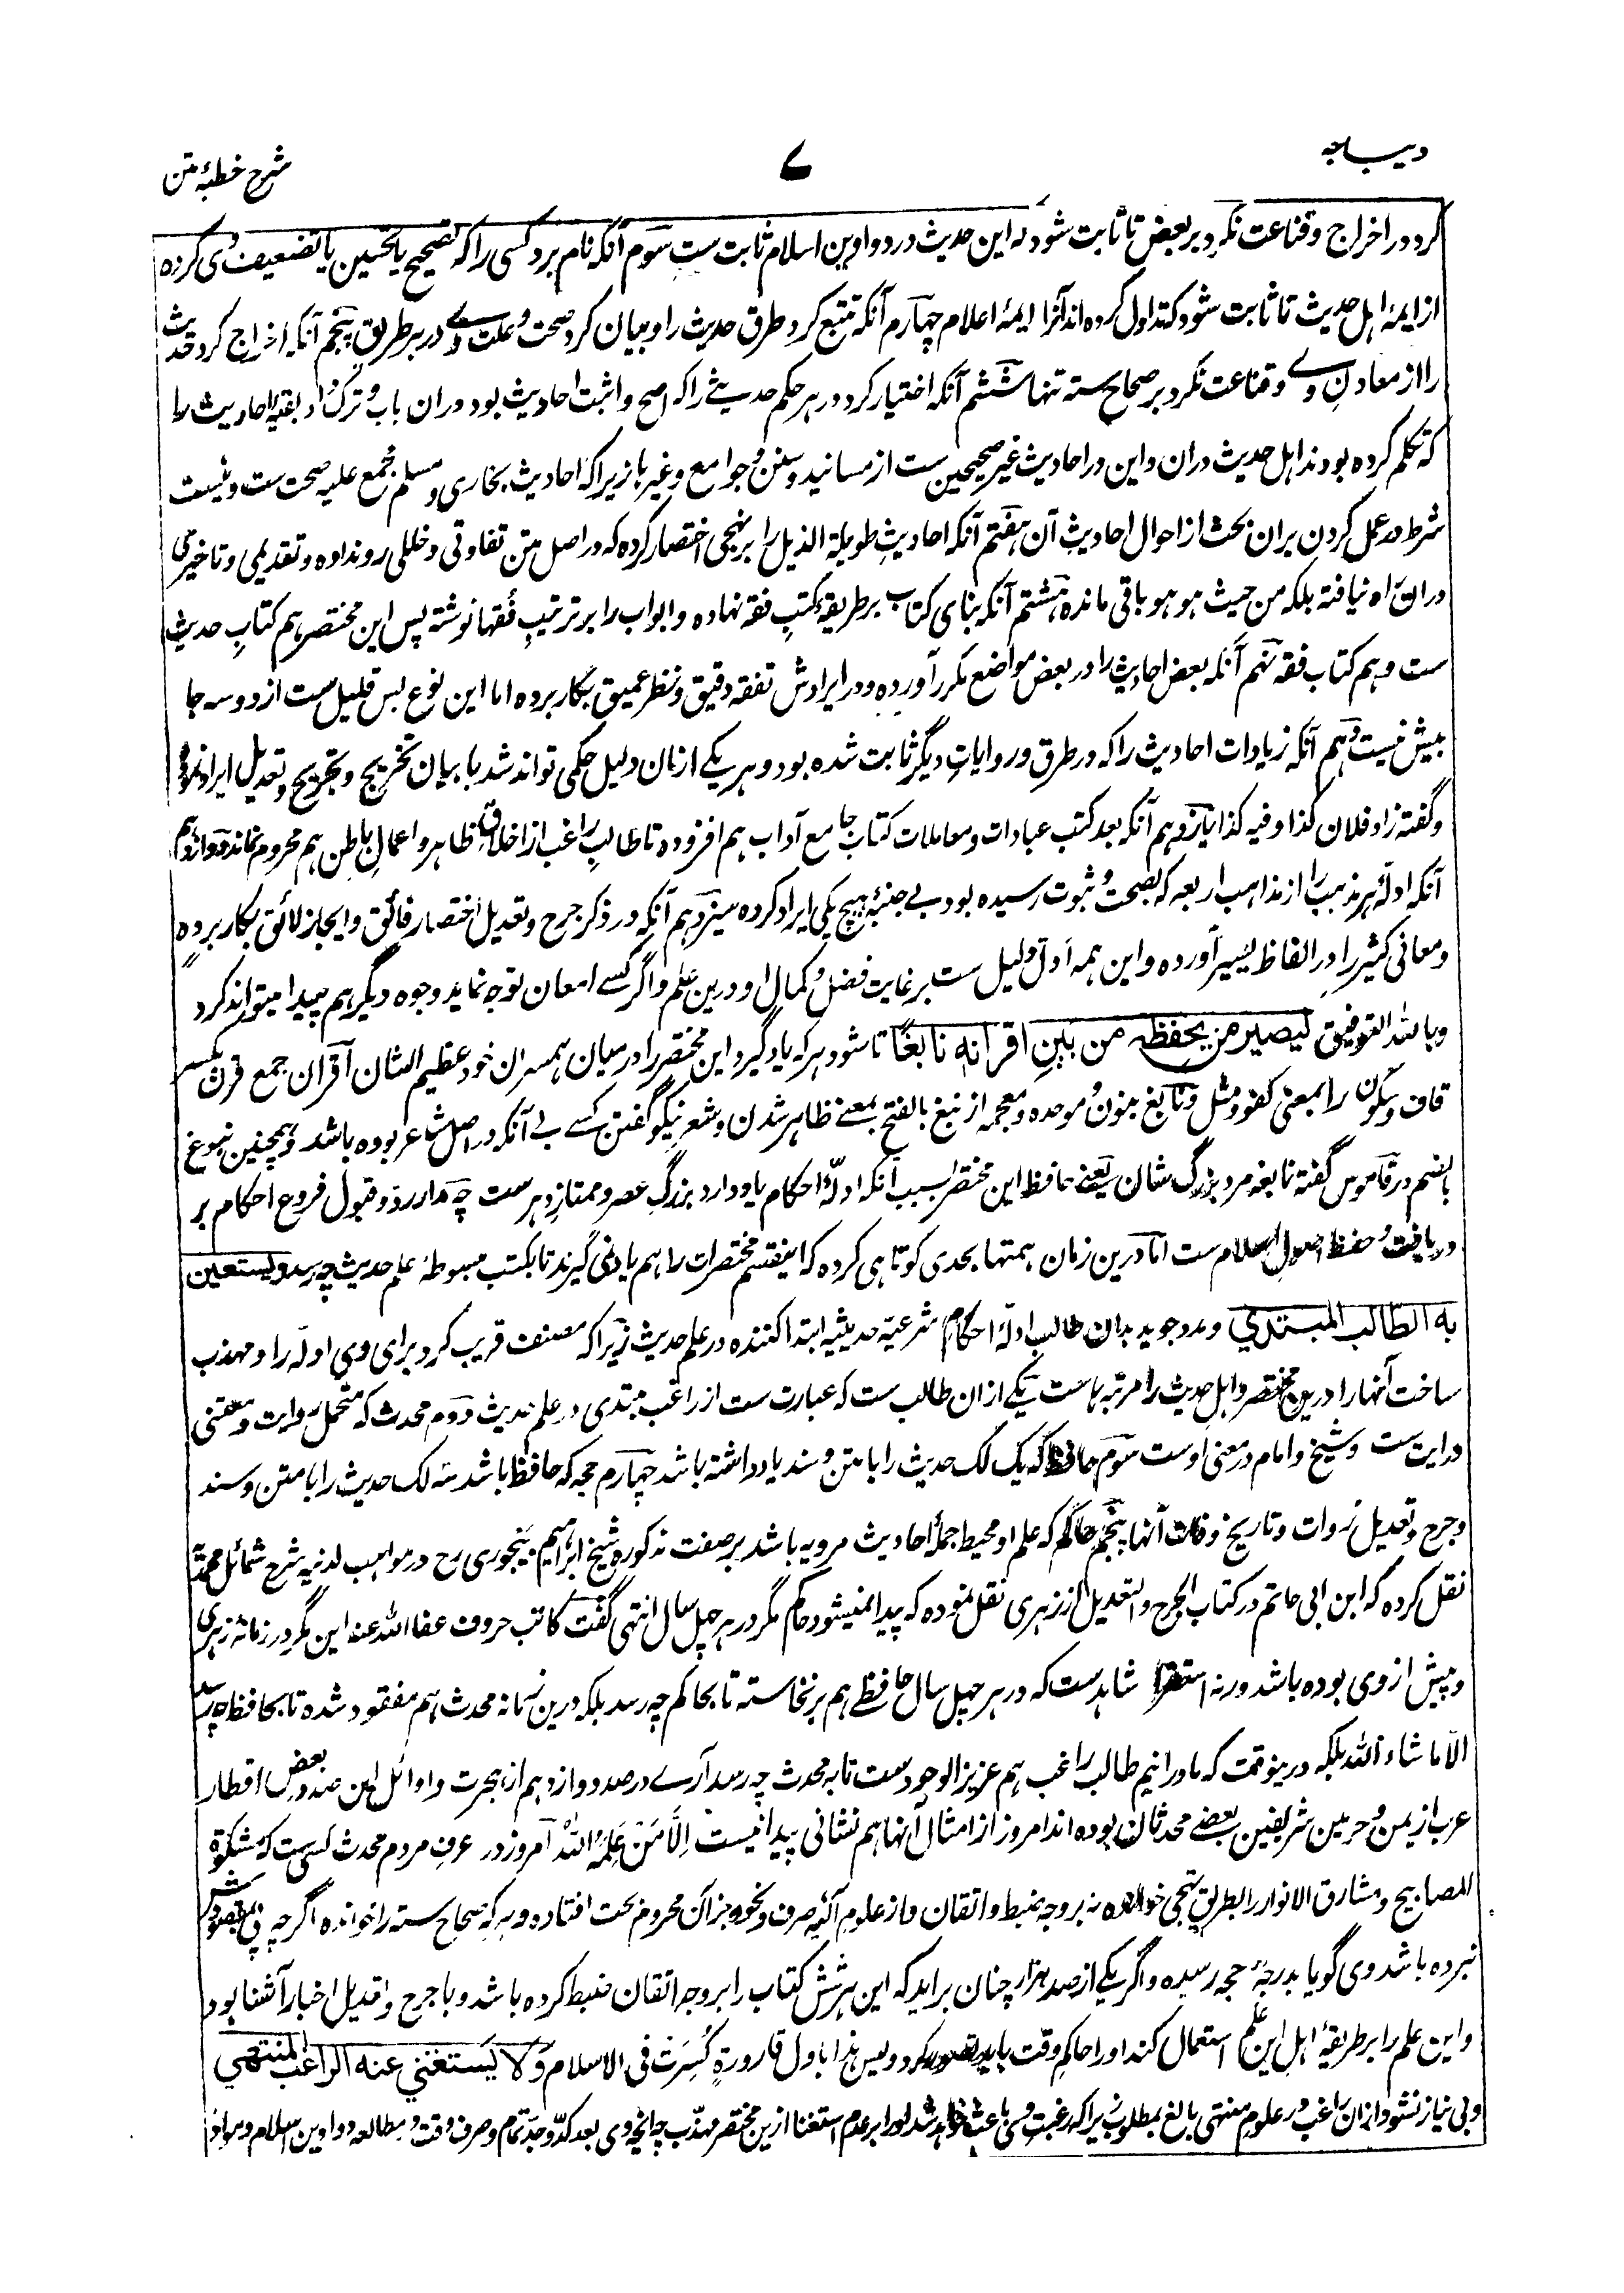 دیباجه
۷
شرح خطبۀ متن
کرد در اخراج و قناعت نکرد بر بعض تا ثابت شود که این حدیث در دواوین اسلام ثابت ست سوم آنکه نام برد کسی را که تصحیح یا تحسین یا تضعیف وی کرده
از ایمۀ اهل حدیث تا ثابت شود که تداول کرده اند آنرا ایمۀ اعلام چهارم آنکه تتبع کرد طرق حدیث را و بیان کرد صحت و علت وے در هر طریق پنجم آنکه اخراج کرد حدیث
را از معادن وے و قناعت نکرد بر صحاح سته تنها ششم آنکه اختیار کرد در هر حکم حدیثے را که اصح و اثبت احادیث بود دران باب و ترک داد بقیه احادیث را
که تکلم کرده بودند اهل حدیث دران و این در احادیث غیر صحیحین ست از مسانید و سنن و جوامع و غیرها زیراکه احادیث بخاری و مسلم مجمع علیه صحت ست و نیست
شرط در عمل کردن بران بحث از احوال احادیث آن هفتم آنکه احادیث طویلة الذیل را بر نهجی اختصار کرده که در اصل متن تفاوتی و خللی رو نداده و تقدیمی و تاخیری
دران راه نیافته بلکه من حیث هو هو باقی مانده هشتم آنکه بنای کتاب بر طریقۀ کتب فقه نهاده و ابواب را بر ترتیب فقها نوشته پس این مختصر هم کتاب حدیث
ست و هم کتاب فقه نهم آنکه بعض احادیث را در بعض مواضع مکرر آورده و در ایرادش تفقه دقیق و نظر عمیق بکار برده اما این نوع بس قلیل ست از دو سه جا
بیش نیست دهم آنکه زیادات احادیث را که در طرق و روایات دیگر ثابت شده بود و هر یکے ازان دلیل حکمی تواند شد با بیان تخریج و تجریح و تعدیل ایراد نموده
و گفته زاد فلان کذا و فیه کذا یازدهم آنکه بعد کتب عبادات و معاملات کتاب جامع آداب هم افزوده تا طالب راغب از اخلاق ظاهر و اعمال باطن هم محروم نماند دوازدهم
آنکه ادلۀ هر مذهب را از مذاهب اربعه که بصحت و ثبوت رسیده بود بے جنبۀ هیچ یکی ایراد کرده سیزدهم آنکه در ذکر جرح و تعدیل اختصار فائق و ایجاز لائق بکار برده
و معانی کثیر را در الفاظ یسیر آورده و این همه ادل دلیل ست بر غایت فضل و کمال او درین علم و اگر کسے امعان توجه نماید وجوه دیگر هم پیدا میتواند کرد
وبالله التوفیق لیصیر من یحفظه من بین اقرانه نابغًا تا شود هر که یاد گیرد این مختصر را درمیان همسران خود عظیم الشان اقران جمع قرن بکسر
قاف و سکون را بمعنی کفو و مثل و نابغ بنون و موحده و معجمه از نبغ بالفتح بمعنے ظاهر شدن و شعر نیکو گفتن کسے بے آنکه در اصل شاعر بوده باشد و همچنین نبوغ
بالضم در قاموس گفته نابغه مرد بزرگ شان یعنے حافظ این مختصر بسبب آنکه ادلّۀ احکام یاد دارد بزرگ عصر و ممتاز دهر ست چه مدار رد و قبول فروع احکام بر
دریافت و حفظ اصول اسلام ست اما درین زمان همتها بحدی کوتاهی کرده که اینقسم مختصرات را هم یاد نمی گیرند تا بکتب مبسوطۀ علم حدیث چه رسد ویستعین
به الطالب المبتدي و مدد جوید بدان طالب ادلّۀ احکام شرعیّه حدیثیه ابتدا کننده در علم حدیث زیراکه مصنف قریب کرد برای وی ادله را و مهذب
ساخت آنها را درین مختصر و اهل حدیث را مرتبه هاست یکے ازان طالب ست که عبارت ست از راغب مبتدی در علم حدیث دوم محدث که متحمل روایت و معتنی
درایت ست و شیخ و امام در معنی اوست سوم حافظ که یک لک حدیث را با متن و سند یاد داشته باشد چهارم حجه که حافظ باشد سه لک حدیث را با متن و سند
و جرح و تعدیل روات و تاریخ وفات آنها پنجم حاکم که علم او محیط جملۀ احادیث مرویه باشد بر صفت مذکوره شیخ ابراهیم بیجوری رح در مواهب لدنیه شرح شمائل محمدیه
نقل کرده که ابن ابی حاتم در کتاب الجرح و التعدیل از زهری نقل نموده که پیدا نمیشود حاکم مگر در هر چهل سال انتهی گفت کاتب حروف عفا الله عنه این مگر در زمانه زهری
و پیش از وی بوده باشد ورنه استقرا شاهد ست که در هر چهل سال حافظے هم بر نخاسته تا بحاکم چه رسد بلکه درین زمانه محدث هم مفقود شده تا بحافظ چه رسد
الا ما شاء الله بلکه درینوقت که ما درانیم طالب راغب هم عزیز الوجود ست تا به محدث چه رسد آرے در صد دوازدهم از هجرت و اوائل این صد در بعض اقطار
عرب از یمن و حرمین شریفین بعضے محدثان بوده اند امروز از امثال آنها هم نشانی پیدا نیست اِلَّا مَنْ عَلِمَهُ اللهُ امروز در عرف مردم محدث کسی ست که مشکوة
المصابیح و مشارق الانوار را بطریق تهجی خوانده نه بر وجه ضبط و اتقان و از علوم آلیه صرف و نحو و جز آن محروم بحت افتاده و هر که صحاح سته را خوانده اگرچه پی بمقصودش
نبرده باشد وی گویا بدرجۀ حجه رسیده و اگر یکے از صد هزار چنان براید که این هر شش کتاب را بر وجه اتقان ضبط کرده باشد و با جرح و تعدیل اخبار آشنا بود
و این علم را بر طریقۀ اهل این علم استعمال کند او را حاکم وقت باید تصور کرد و لیس هذا باول قارورة کُسِرَت فی الاسلام وَلا یَستغني عنه الراغب المنتهي
و بی نیاز نشود ازان راغب در علوم منتهی بالغ بمطلوب زیراکه رغبت وی باعث خواهد شد او را بر عدم استغنا ازین مختصر مهذب چه آنچه وی بعد کدّ و جدّ تمام و صرف وقت در مطالعه دواوین اسلام و مواد